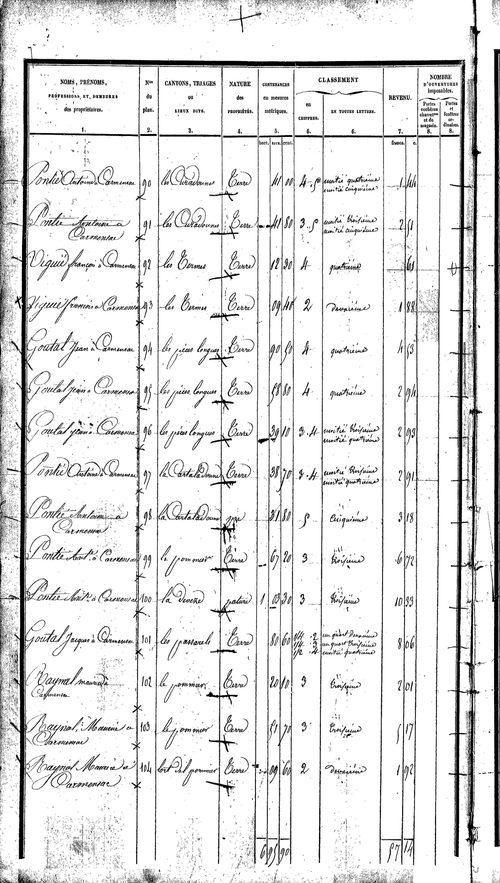 NOMS, PRÉNOMS, PROFESSIONS, ET, DEMEURES des propriétaires. | Nos du plan. | CANTONS, TRIAGES ou LIEUX DITS. | NATURE des PROPRIÉTÉS. | CONTENANCES en mesures métriques. | CLASSEMENT en CHIFFRES. | CLASSEMENT EN TOUTES LETTRES. | REVENU. | NOMBRE D'OUVERTURES imposables. Portes cochères charretres et de magasin. | Portes et fenêtres ordinaires.
1. 2. 3. 4. 5. 6. 6. 7. 8. 8.
hect. ares. cent. francs. c.
Pontié Antoine à Carmensac 90 les Curadounes Terre 41 00 4 . 5 moitié quatrième moitié cinquième 1 44
Pontié Antoine à Carmensac 91 les Curadounes Terre 41 80 3 . 5 moitié troisième moitié cinquième 2 51
Viguié françois à Carmensac 92 les Termes Terre 12 30 4 quatrième 61
Viguié françois à Carmensac 93 les Termes Terre 09 40 2 deuxième 1 88
Goutal Jean à Carmensac 94 les pièces longues Terre 90 50 4 quatrième 4 53
Goutal Jean à Carmensac 95 les pièces longues Terre 58 80 4 quatrième 2 94
Goutal Jean à Carmensac 96 les pièces longues Terre 39 10 3 . 4 moitié troisième moitié quatrième 2 93
Pontié Antoine à Carmensac 97 la Cartaladoune Terre 38 70 3 . 4 moitié troisième moitié quatrième 2 91
Pontié Antoine à Carmensac 98 la Cartaladoune pré 31 80 5 Cinquième 3 18
Pontié Ante à Carmensac 99 le pommier Terre 67 20 3 troisième 6 72
Pontié Ante à Carmensac 100 la devèze pature 1 03 30 3 troisième 10 33
Goutal Jacques à Carmensac 101 les passarels Terre 80 60 1/4 . 2 1/4 . 3 1/2 . 4 un quart deuxième un quart troisième moitié quatrième 8 06
Raynal maurice à Carmensac 102 le pommier Terre 20 10 3 troisième 2 01
Raynal Maurice à Carmensac 103 le pommier Terre 51 70 3 troisième 5 17
Raynal Maurice à Carmensac 104 bort del pommier Terre 09 60 2 deuxième 1 92
6 95 90 57 14